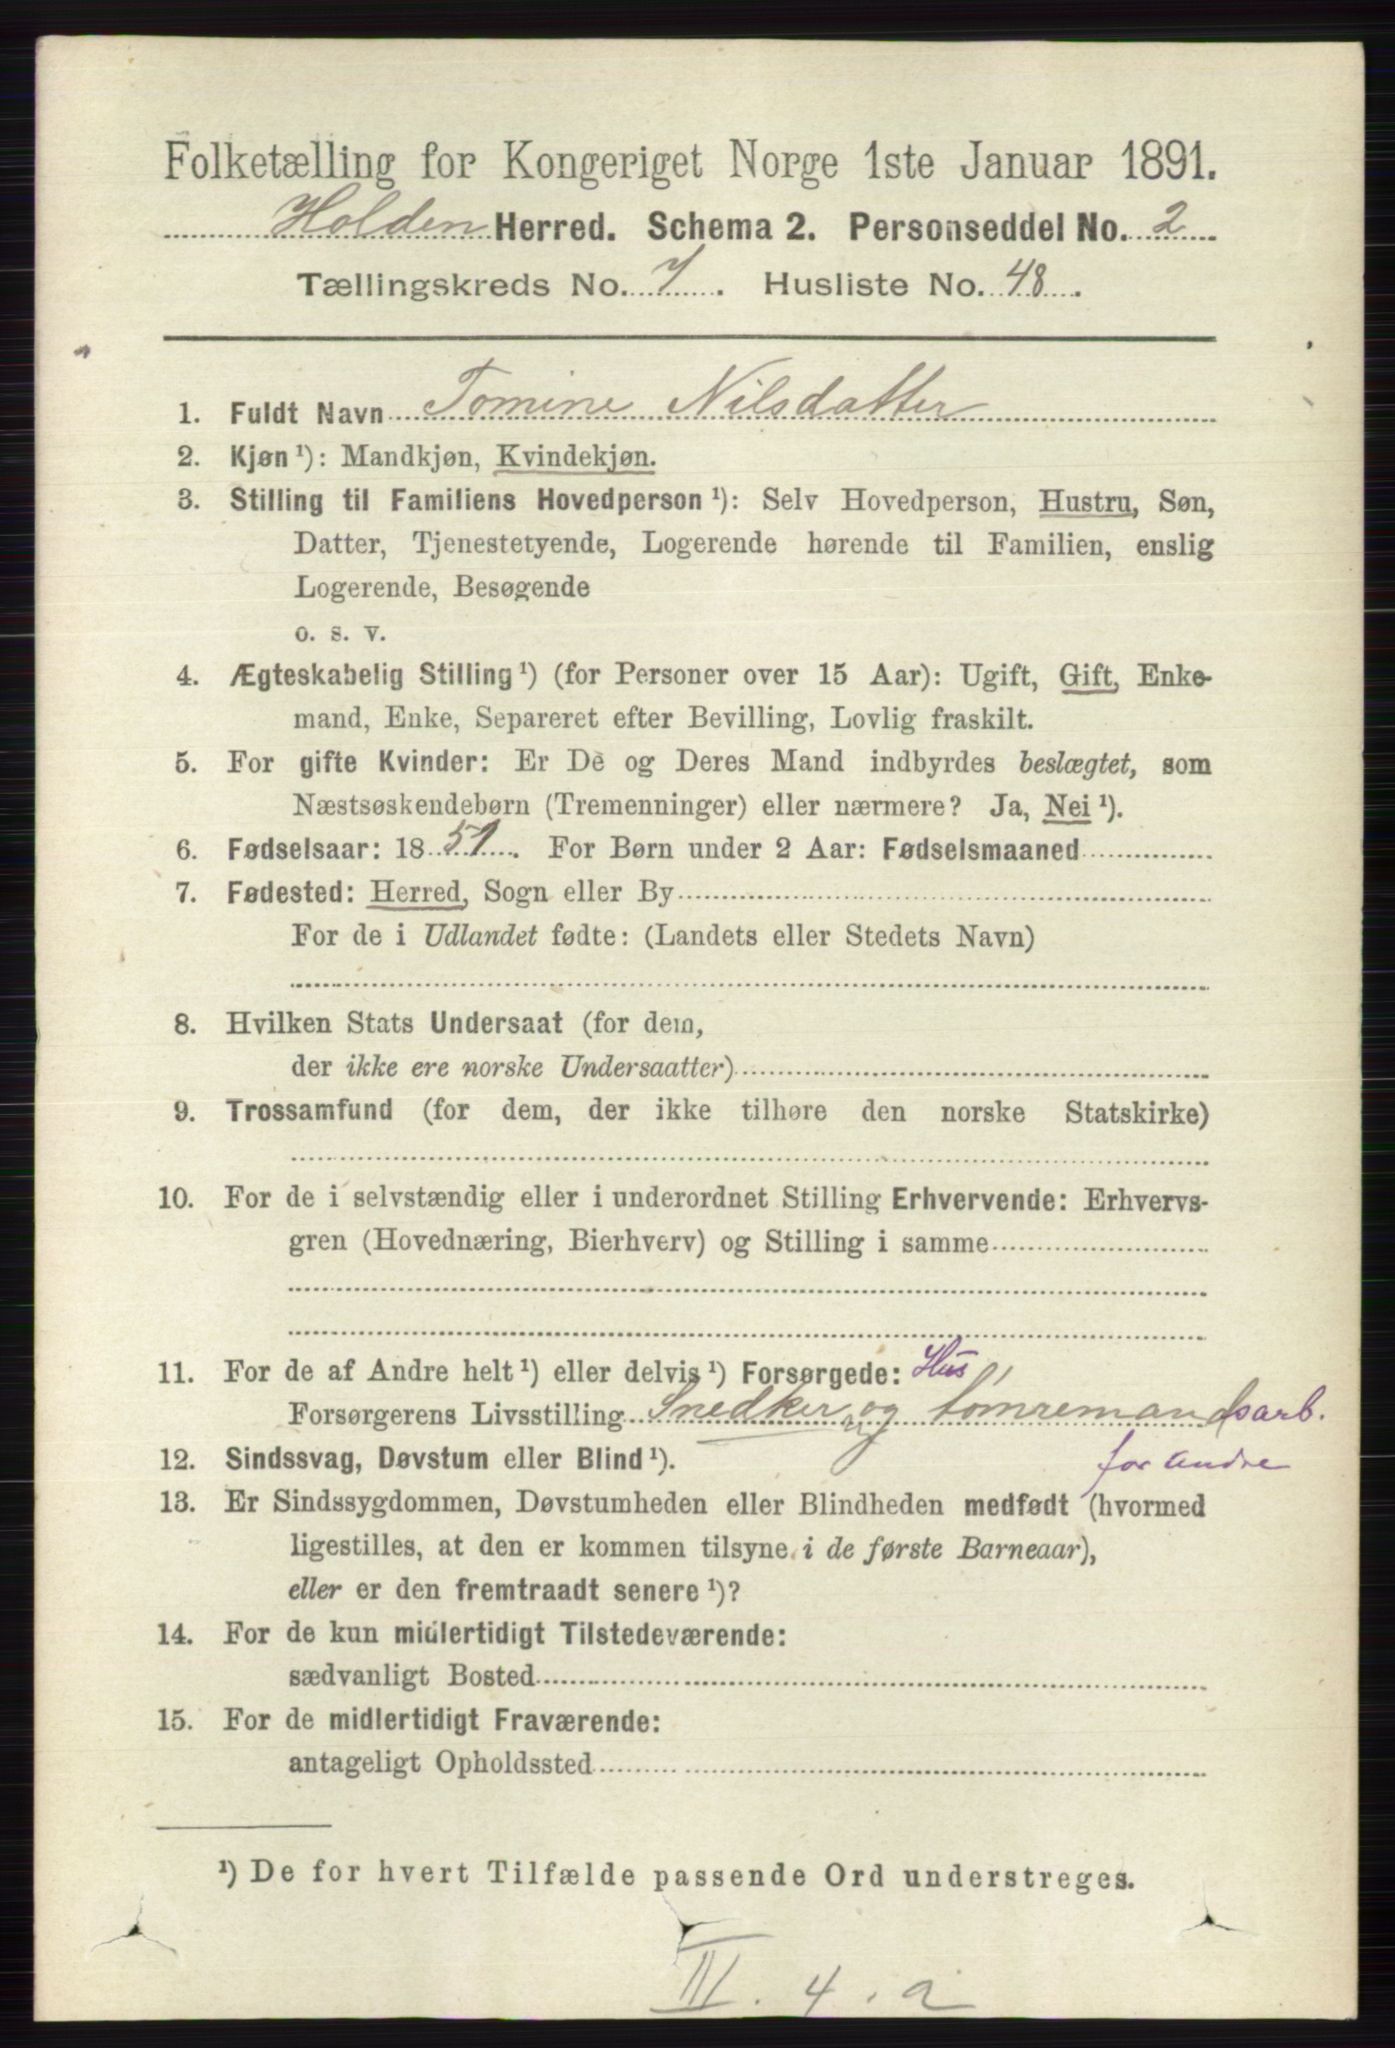 Folketælling for Kongeriget Norge 1ste Januar 1891.
Holden Herred. Schema 2. Personseddel No. 2
Tællingskreds No. 7. Husliste No. 48.
1. Fuldt Navn Tomine Nilsdatter
2. Kjøn¹): Mandkjøn, Kvindekjøn.
3. Stilling til Familiens Hovedperson¹): Selv Hovedperson, Hustru, Søn,
Datter, Tjenestetyende, Logerende hørende til Familien, enslig
Logerende, Besøgende
o. s. v.
4. Ægteskabelig Stilling¹) (for Personer over 15 Aar): Ugift, Gift, Enke-
mand, Enke, Separeret efter Bevilling, Lovlig fraskilt.
5. For gifte Kvinder: Er De og Deres Mand indbyrdes beslægtet, som
Næstsøskendebørn (Tremenninger) eller nærmere? Ja, Nei¹).
6. Fødselsaar: 1851. For Børn under 2 Aar: Fødselsmaaned
7. Fødested: Herred, Sogn eller By
For de i Udlandet fødte: (Landets eller Stedets Navn)
8. Hvilken Stats Undersaat (for dem,
der ikke ere norske Undersaatter)
9. Trossamfund (for dem, der ikke tilhøre den norske Statskirke)
10. For de i selvstændig eller i underordnet Stilling Erhvervende: Erhvervs-
gren (Hovednæring, Bierhverv) og Stilling i samme
11. For de af Andre helt¹) eller delvis¹) Forsørgede: Hus
Forsørgerens Livsstilling Snedker og tømremandsarb.
for andre
12. Sindssvag, Døvstum eller Blind¹).
13. Er Sindssygdommen, Døvstumheden eller Blindheden medfødt (hvormed
ligestilles, at den er kommen tilsyne i de første Barneaar),
eller er den fremtraadt senere¹)?
14. For de kun midlertidigt Tilstedeværende:
sædvanligt Bosted
15. For de midlertidigt Fraværende:
antageligt Opholdssted
¹) De for hvert Tilfælde passende Ord understreges.
IV. 4. a